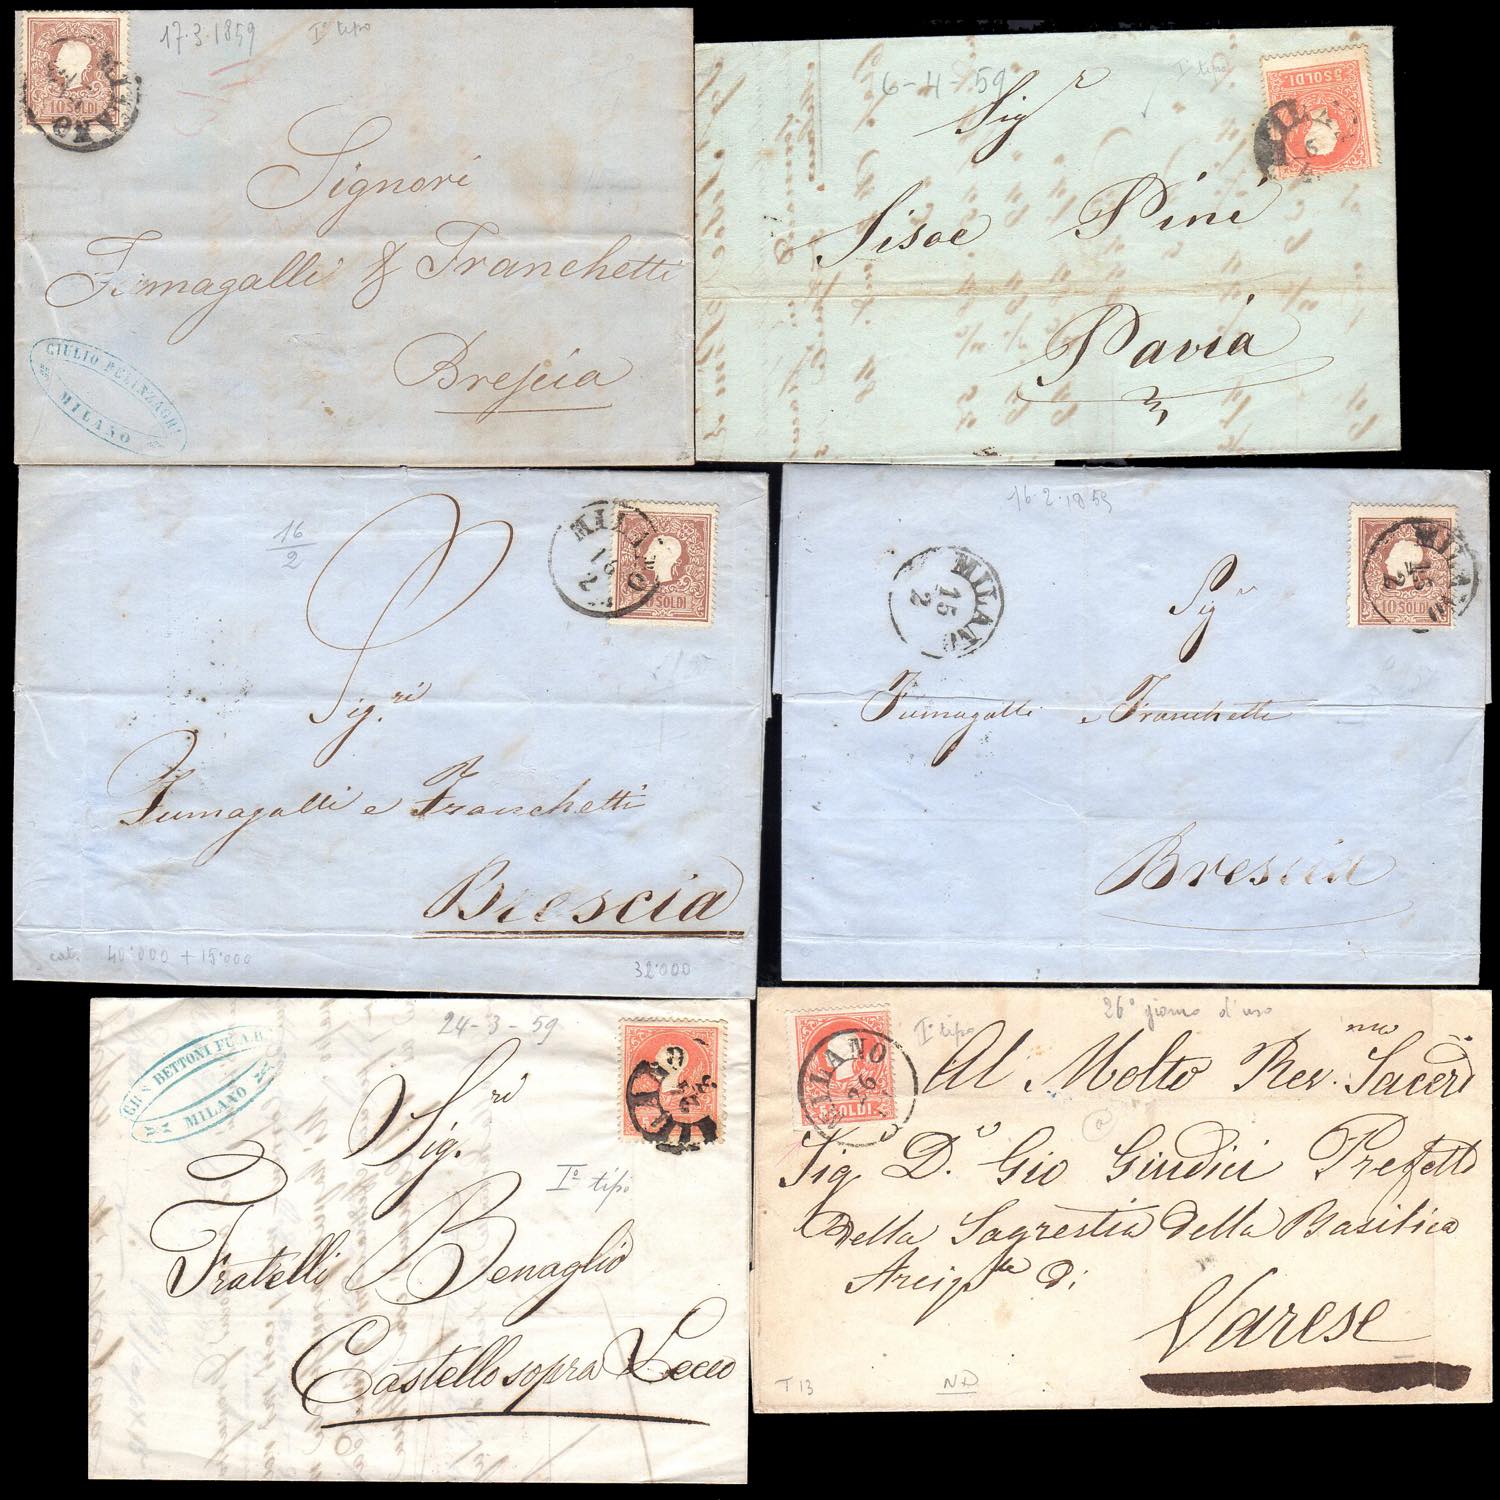 17·3·1859 I° tipo
10 SOLDI
MILANO
Signori
Fumagalli & Franchetti
Brescia
GIULIO
MILANO
6-4-59 I° tipo
5 SOLDI
MILANO
Sig.r
Sisoe Pini
Pavia
16
2
MILANO
16
2
SOLDI
Sig.ri
Fumagalli e Franchetti
Brescia
cat. 40·000 + 15·000
32·000
16·2·1859
MILANO
15
2
MILANO
15
2
10 SOLDI
Sig.r
Fumagalli e Franchetti
Brescia
BETTONI FU A.B.
MILANO
24-3-59
Sig.ri
I° tipo
Fratelli Benaglio
Castello sopra Lecco
26° giorno d'uso
I° tipo
MILANO
26
5 SOLDI
Al Molto Rev.mo Sacerd
Sig. D.n Gio Giudici Prefetto
della Sagrestia della Basilica
di
Varese
T 13
ND